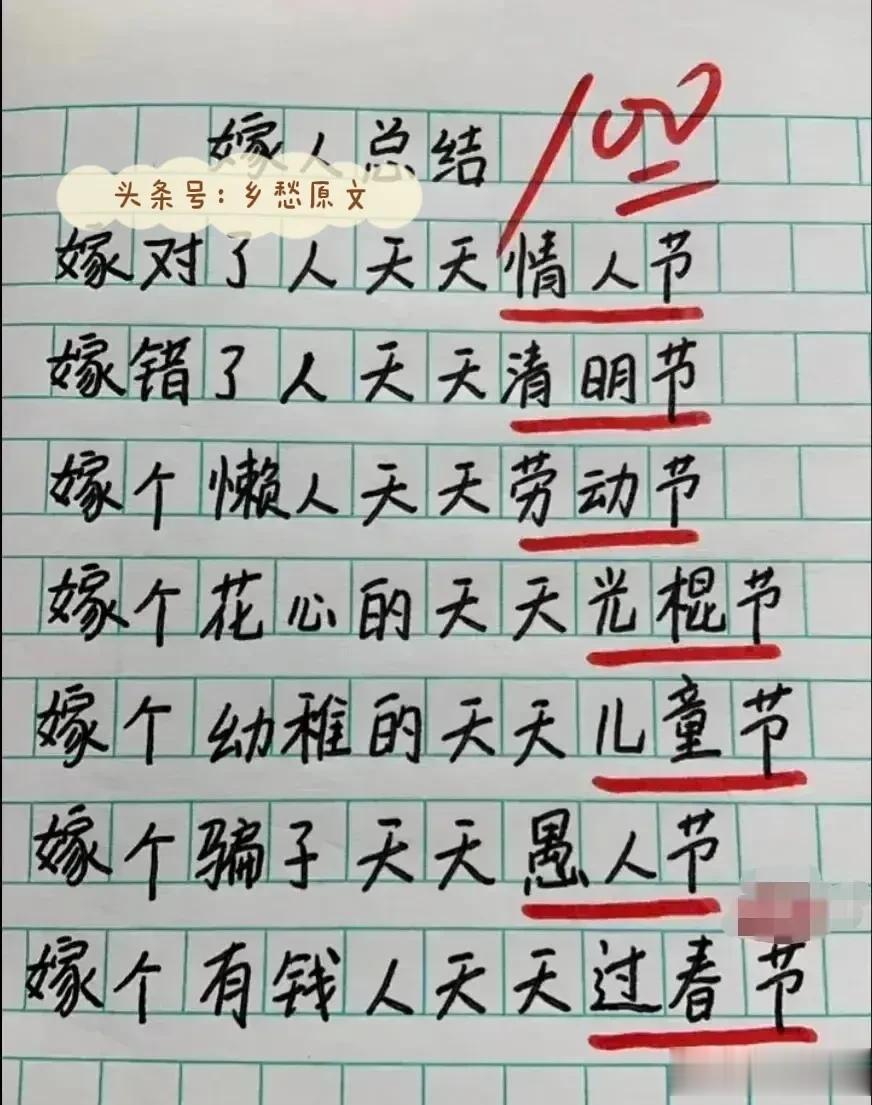 嫁人总结 100
头条号:乡愁原文
嫁对了人天天情人节
嫁错了人天天清明节
嫁个懒人天天劳动节
嫁个花心的天天光棍节
嫁个幼稚的天天儿童节
嫁个骗子天天愚人节
嫁个有钱人天天过春节